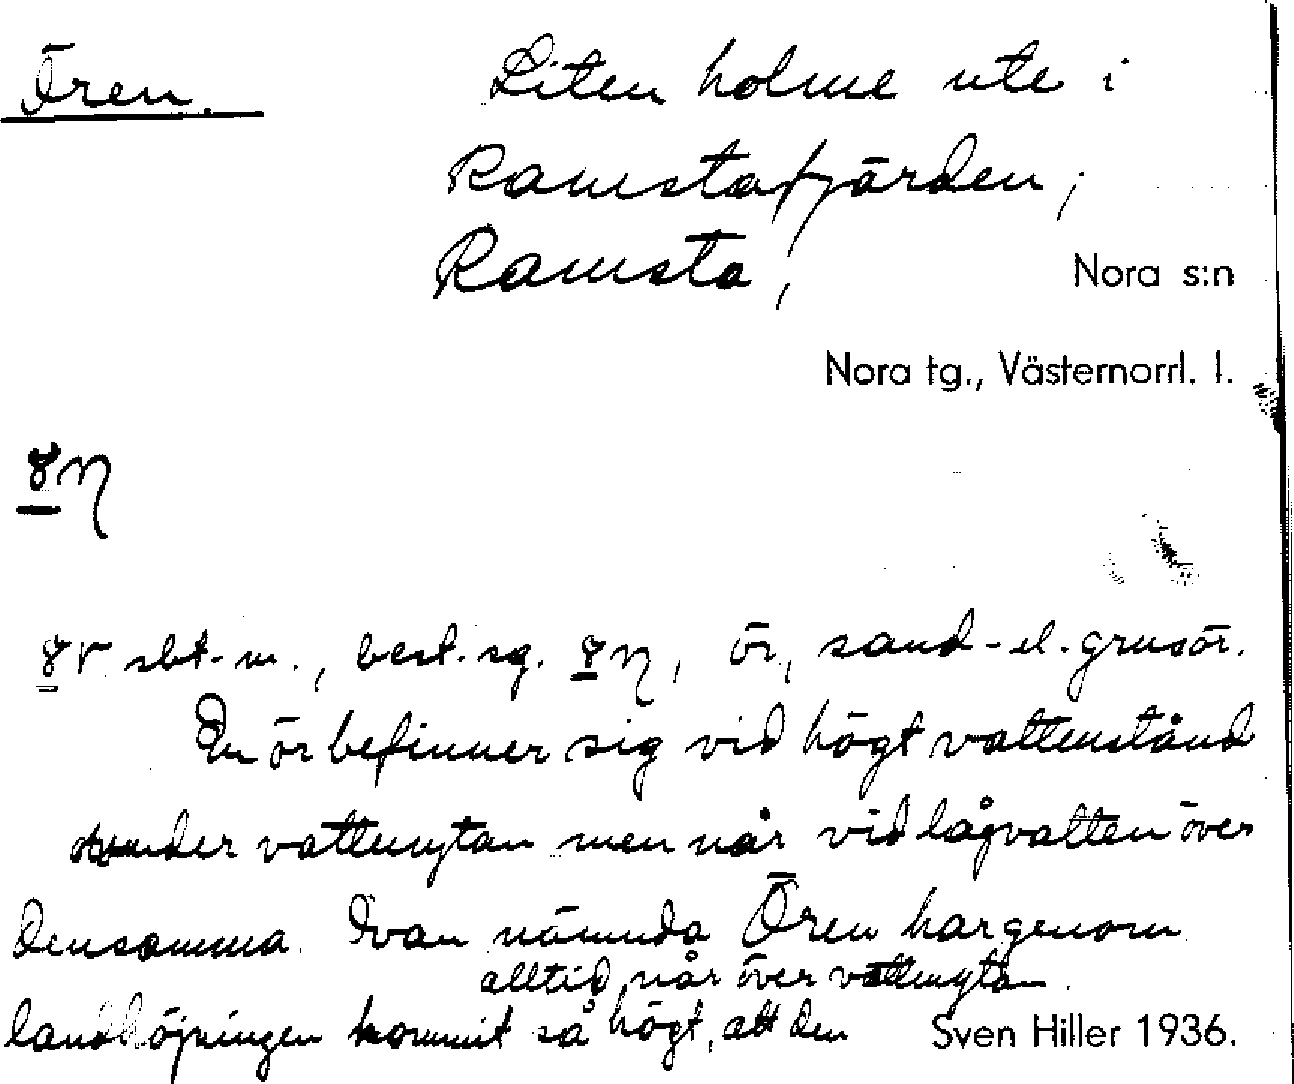 Ören. Liten holme ute i
Ramstafjärden,
Ramsta, Nora s:n
Nora tg., Västernorrl. l.
sbt. m., best. sg. ör, sand- el. grusör.
En ör befinner sig vid högt vattenstånd
under vattenytan men når vid lågvatten över
densamma. Ovan nämnda Ören har genom
landhöjningen kommit så högt, att den
alltid når över vattenytan.
Sven Hiller 1936.